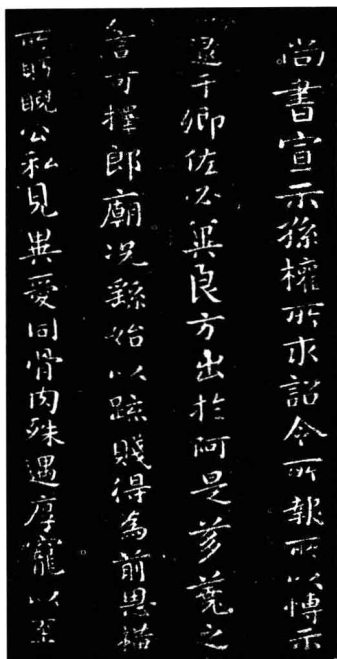 尚書宣示孫權所求詔令所報所以愽示
逮于卿佐必冀良方出於阿是芻蕘之
言可擇郎廟況繇始以踈賤得為前恩横
所眄睨公私見異愛同骨肉殊遇厚寵以至